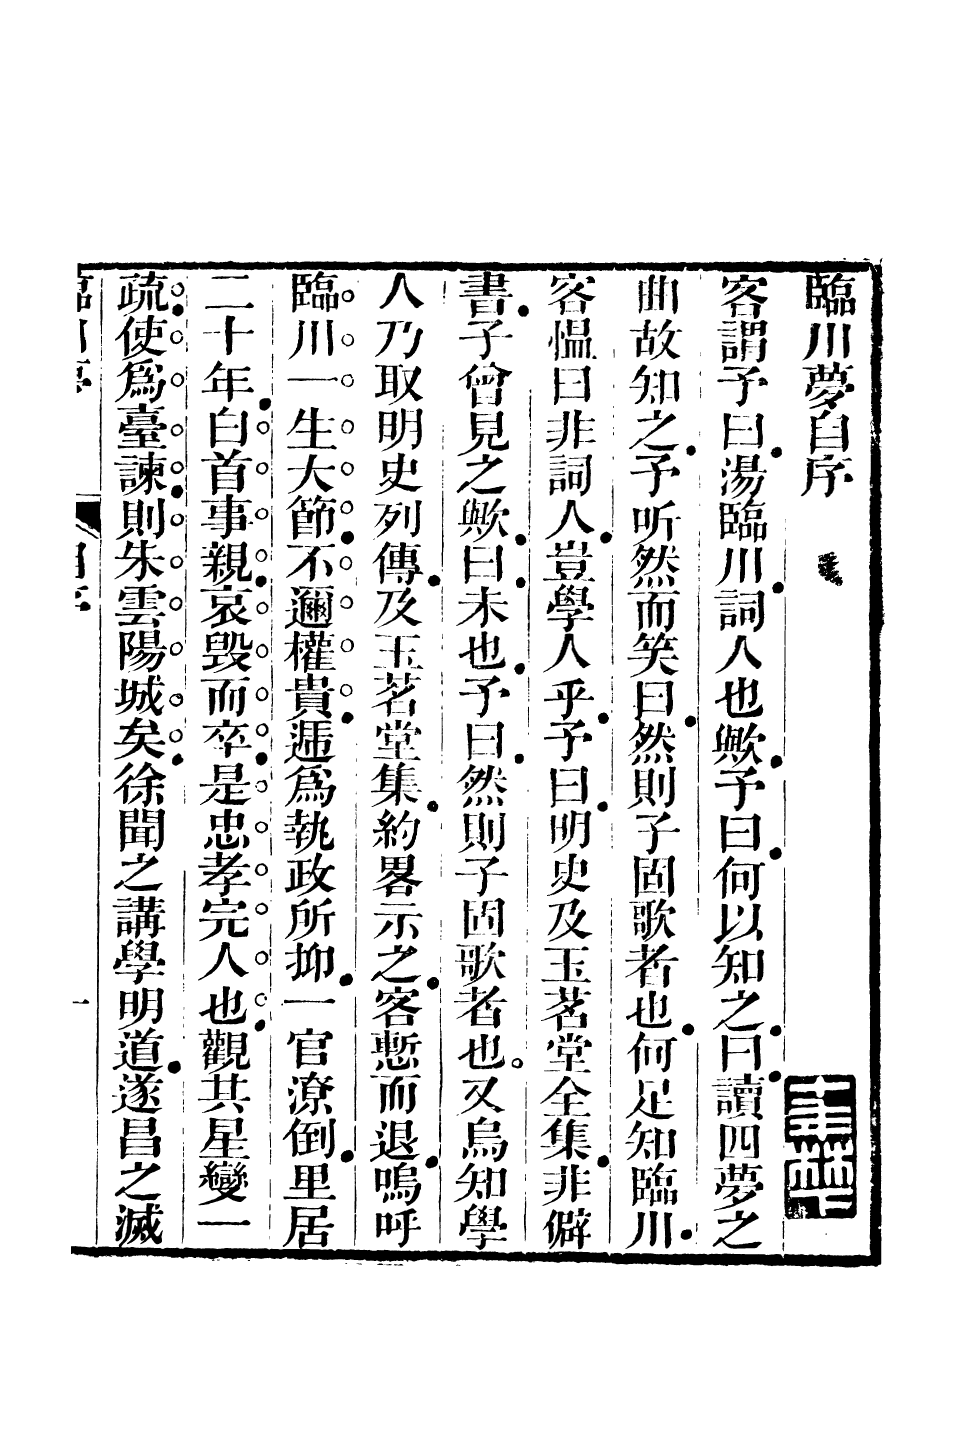 臨川夢自序
客謂予曰湯臨川詞人也歟予曰何以知之曰讀四夢之
曲故知之予听然而笑曰然則子固歌者也何足知臨川
客愠曰非詞人豈學人乎予曰明史及玉茗堂全集非僻
書子曾見之歟曰未也予曰然則子固歌者也又烏知學
人乃取明史列傳及玉茗堂集約畧示之客慙而退嗚呼
臨川一生大節不邇權貴遞爲執政所抑一官潦倒里居
二十年白首事親哀毀而卒是忠孝完人也觀其星變一
疏使爲臺諫則朱雲陽城矣徐聞之講學明道遂昌之滅
臨川夢
自序
一